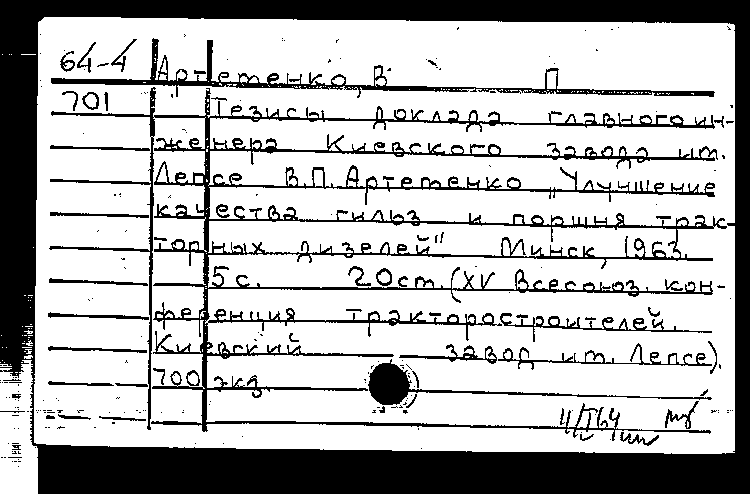 64-4 Артетенко, В П
701 Тезисы доклада главного ин-
женера Киевского завода им.
Лепсе В.П. Артетенко „Улучшение
качества гильз и поршня трак-
торных дизелей" Минск, 1963.
5 с. 20 ст. (XV Всесоюз. кон-
ференция тракторостроителей.
Киевский завод им. Лепсе).
700 экз.